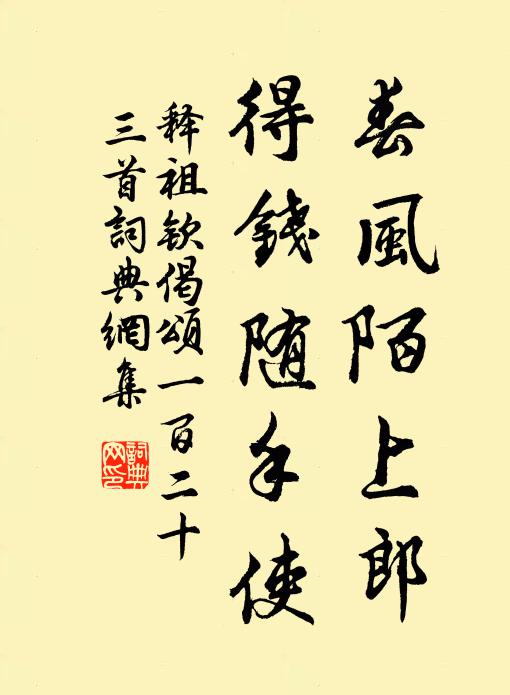 春風陌上郎
得錢隨手使
释祖钦偈頌一百二十
三首詞典網集
詞典
网印